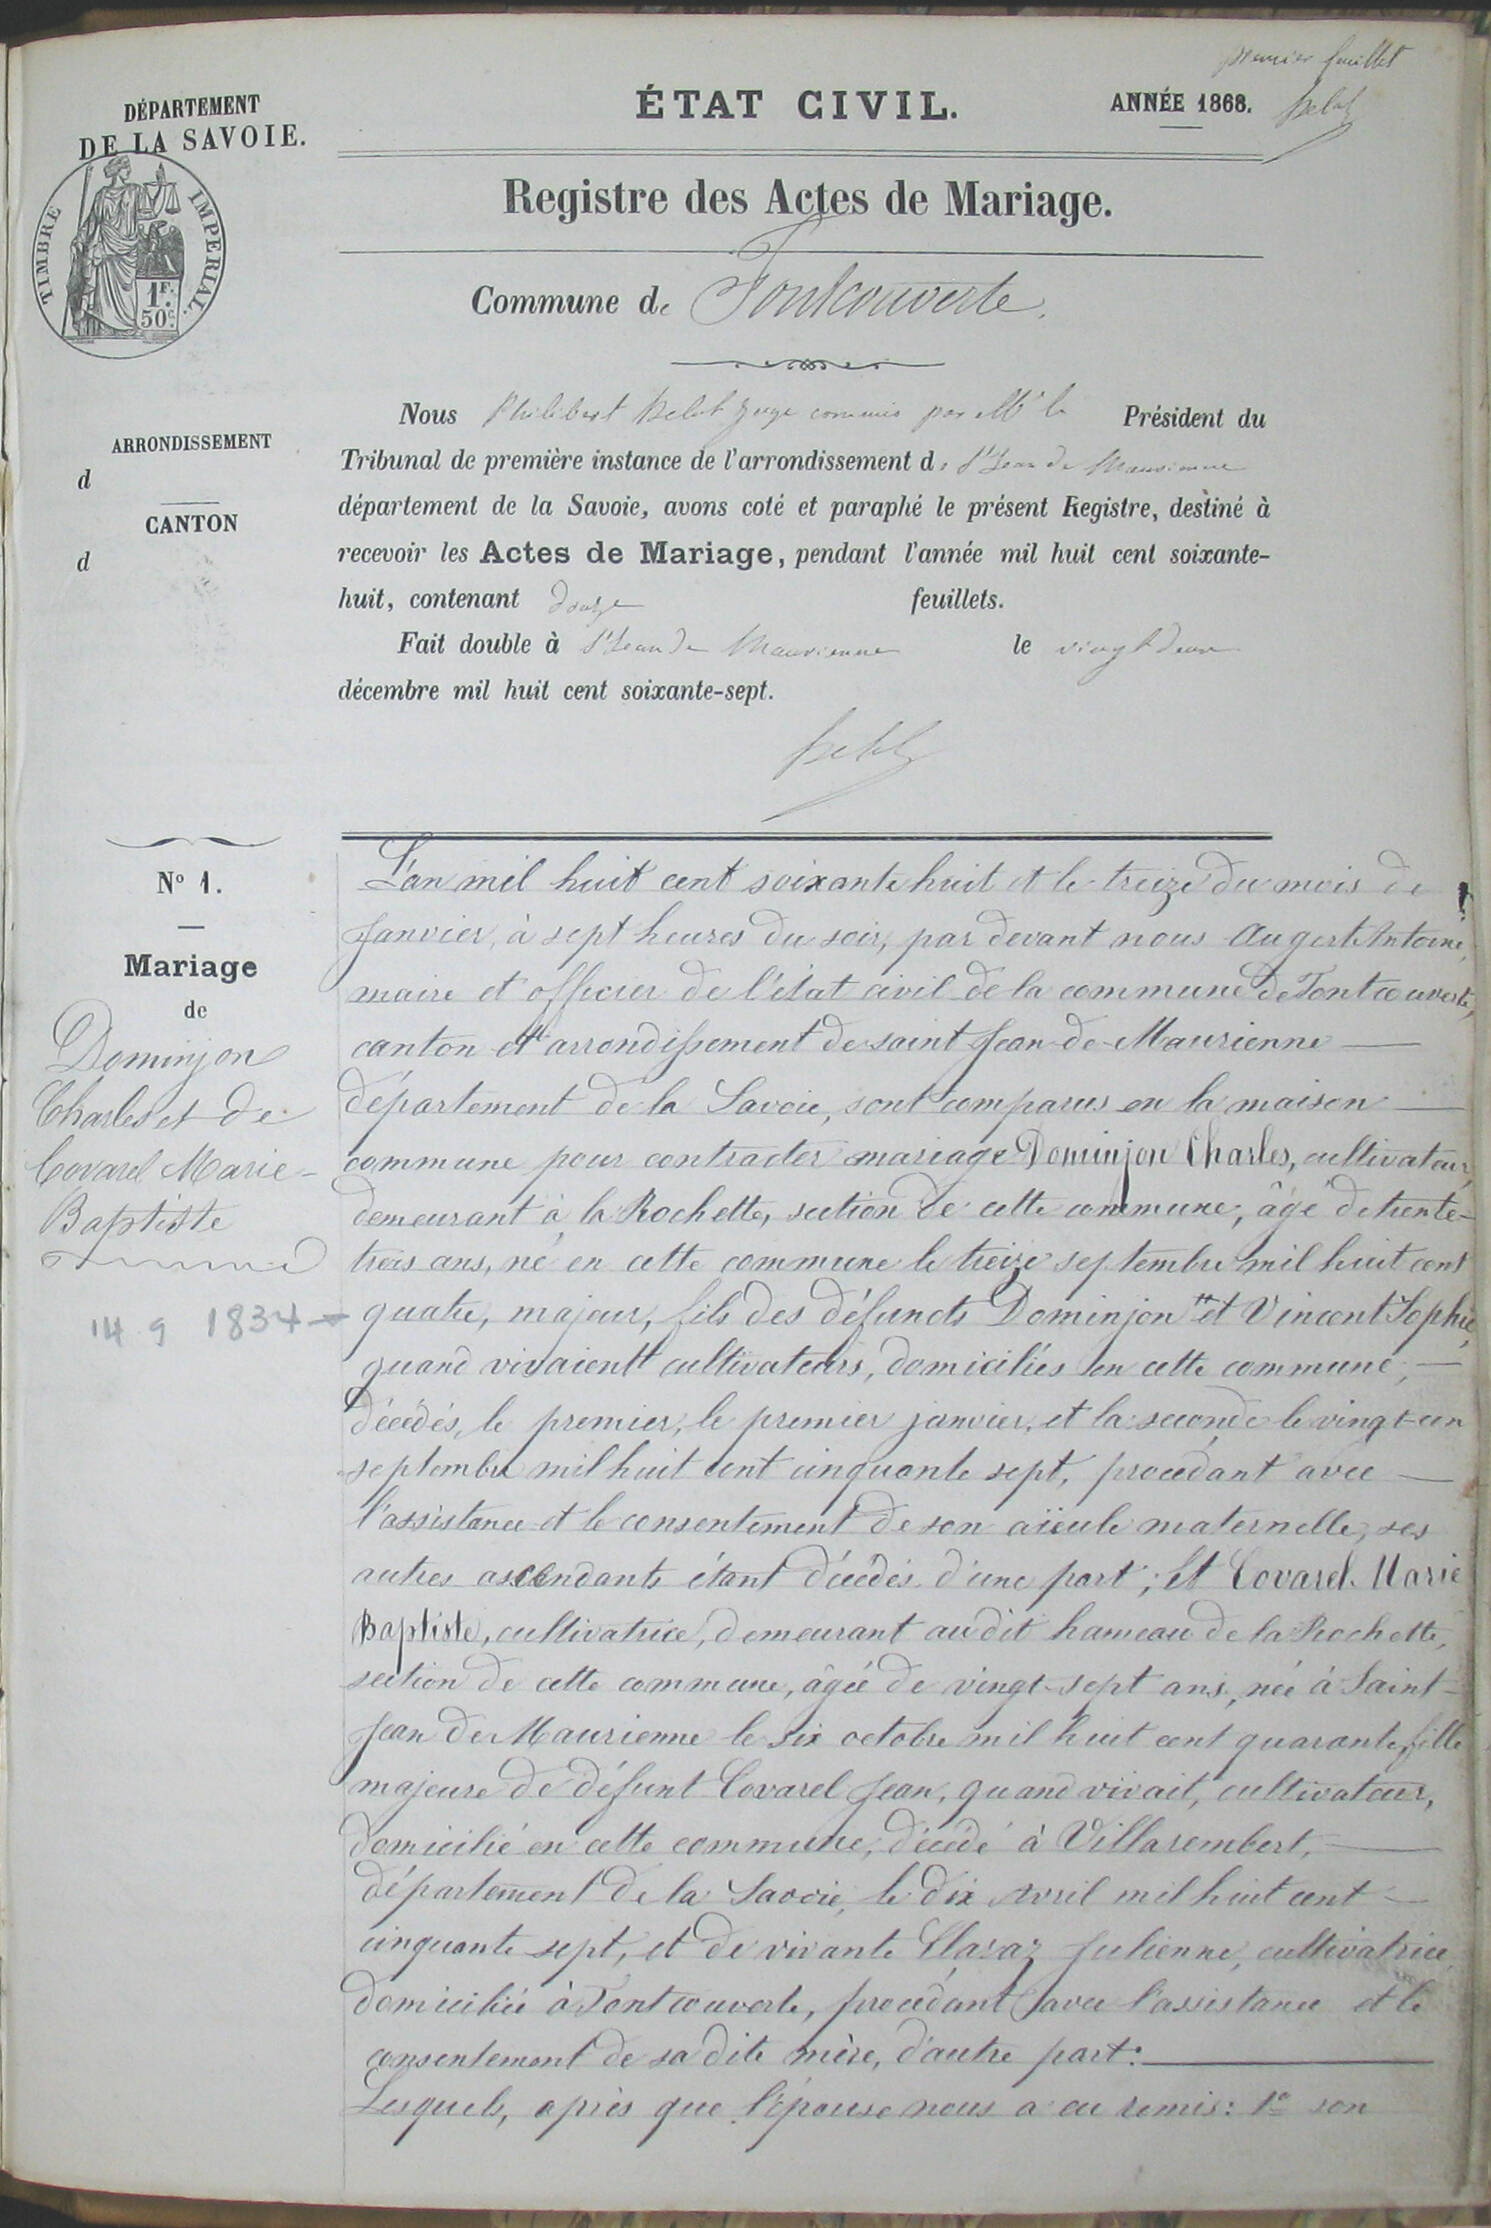 premier feuillet
DÉPARTEMENT
DE LA SAVOIE.
ÉTAT CIVIL.
ANNÉE 1868.
TIMBRE IMPERIAL.
1F.
50c
Registre des Actes de Mariage.
Commune de Fontcouverte.
ARRONDISSEMENT
d
CANTON
d
Nous Philibert Belat Juge commis par Mr le Président du
Tribunal de première instance de l'arrondissement de St Jean de Maurienne
département de la Savoie, avons coté et paraphé le présent Registre, destiné à
recevoir les Actes de Mariage, pendant l'année mil huit cent soixante-
huit, contenant douze feuillets.
Fait double à St Jean de Maurienne le vingt deux
décembre mil huit cent soixante-sept.
No 1.
Mariage
de
Dominjon
Charles et de
Covarel Marie-
Baptiste
14 9 1834
L'an mil huit cent soixante huit et le treize du mois de
Janvier, à sept heures du soir, par devant nous Augert Antoine,
maire et officier de l'état civil de la commune de Fontcouverte,
canton et arrondissement de saint Jean-de-Maurienne
département de la Savoie, sont comparus en la maison
commune pour contracter mariage Dominjon Charles, cultivateur,
demeurant à la Rochette, section de cette commune, âgé de trente-
trois ans, né en cette commune le treize septembre mil huit cent
quatre, majeur, fils des défunts Dominjon # et Vincent Sophie,
quand vivaient cultivateurs, domiciliés en cette commune,
décédés, le premier, le premier janvier, et la seconde le vingt-un
septembre mil huit cent cinquante sept, procédant avec
l'assistance et le consentement de son aïeule maternelle, ses
autres ascendants étant décédés d'une part; Et Covarel Marie
Baptiste, cultivatrice, demeurant audit hameau de la Rochette,
section de cette commune, âgée de vingt-sept ans, née à Saint-
Jean de Maurienne le six octobre mil huit cent quarante, fille
majeure de défunt Covarel Jean, quand vivait, cultivateur,
domicilié en cette commune, décédé à Villarembert,
département de la Savoie, le dix avril mil huit cent
cinquante sept, et de vivante Claraz Julienne, cultivatrice
domiciliée à Fontcouverte, procédant avec l'assistance et le
consentement de sa dite mère, d'autre part:
Lesquels, après que l'épouse nous a eu remis: 1o son